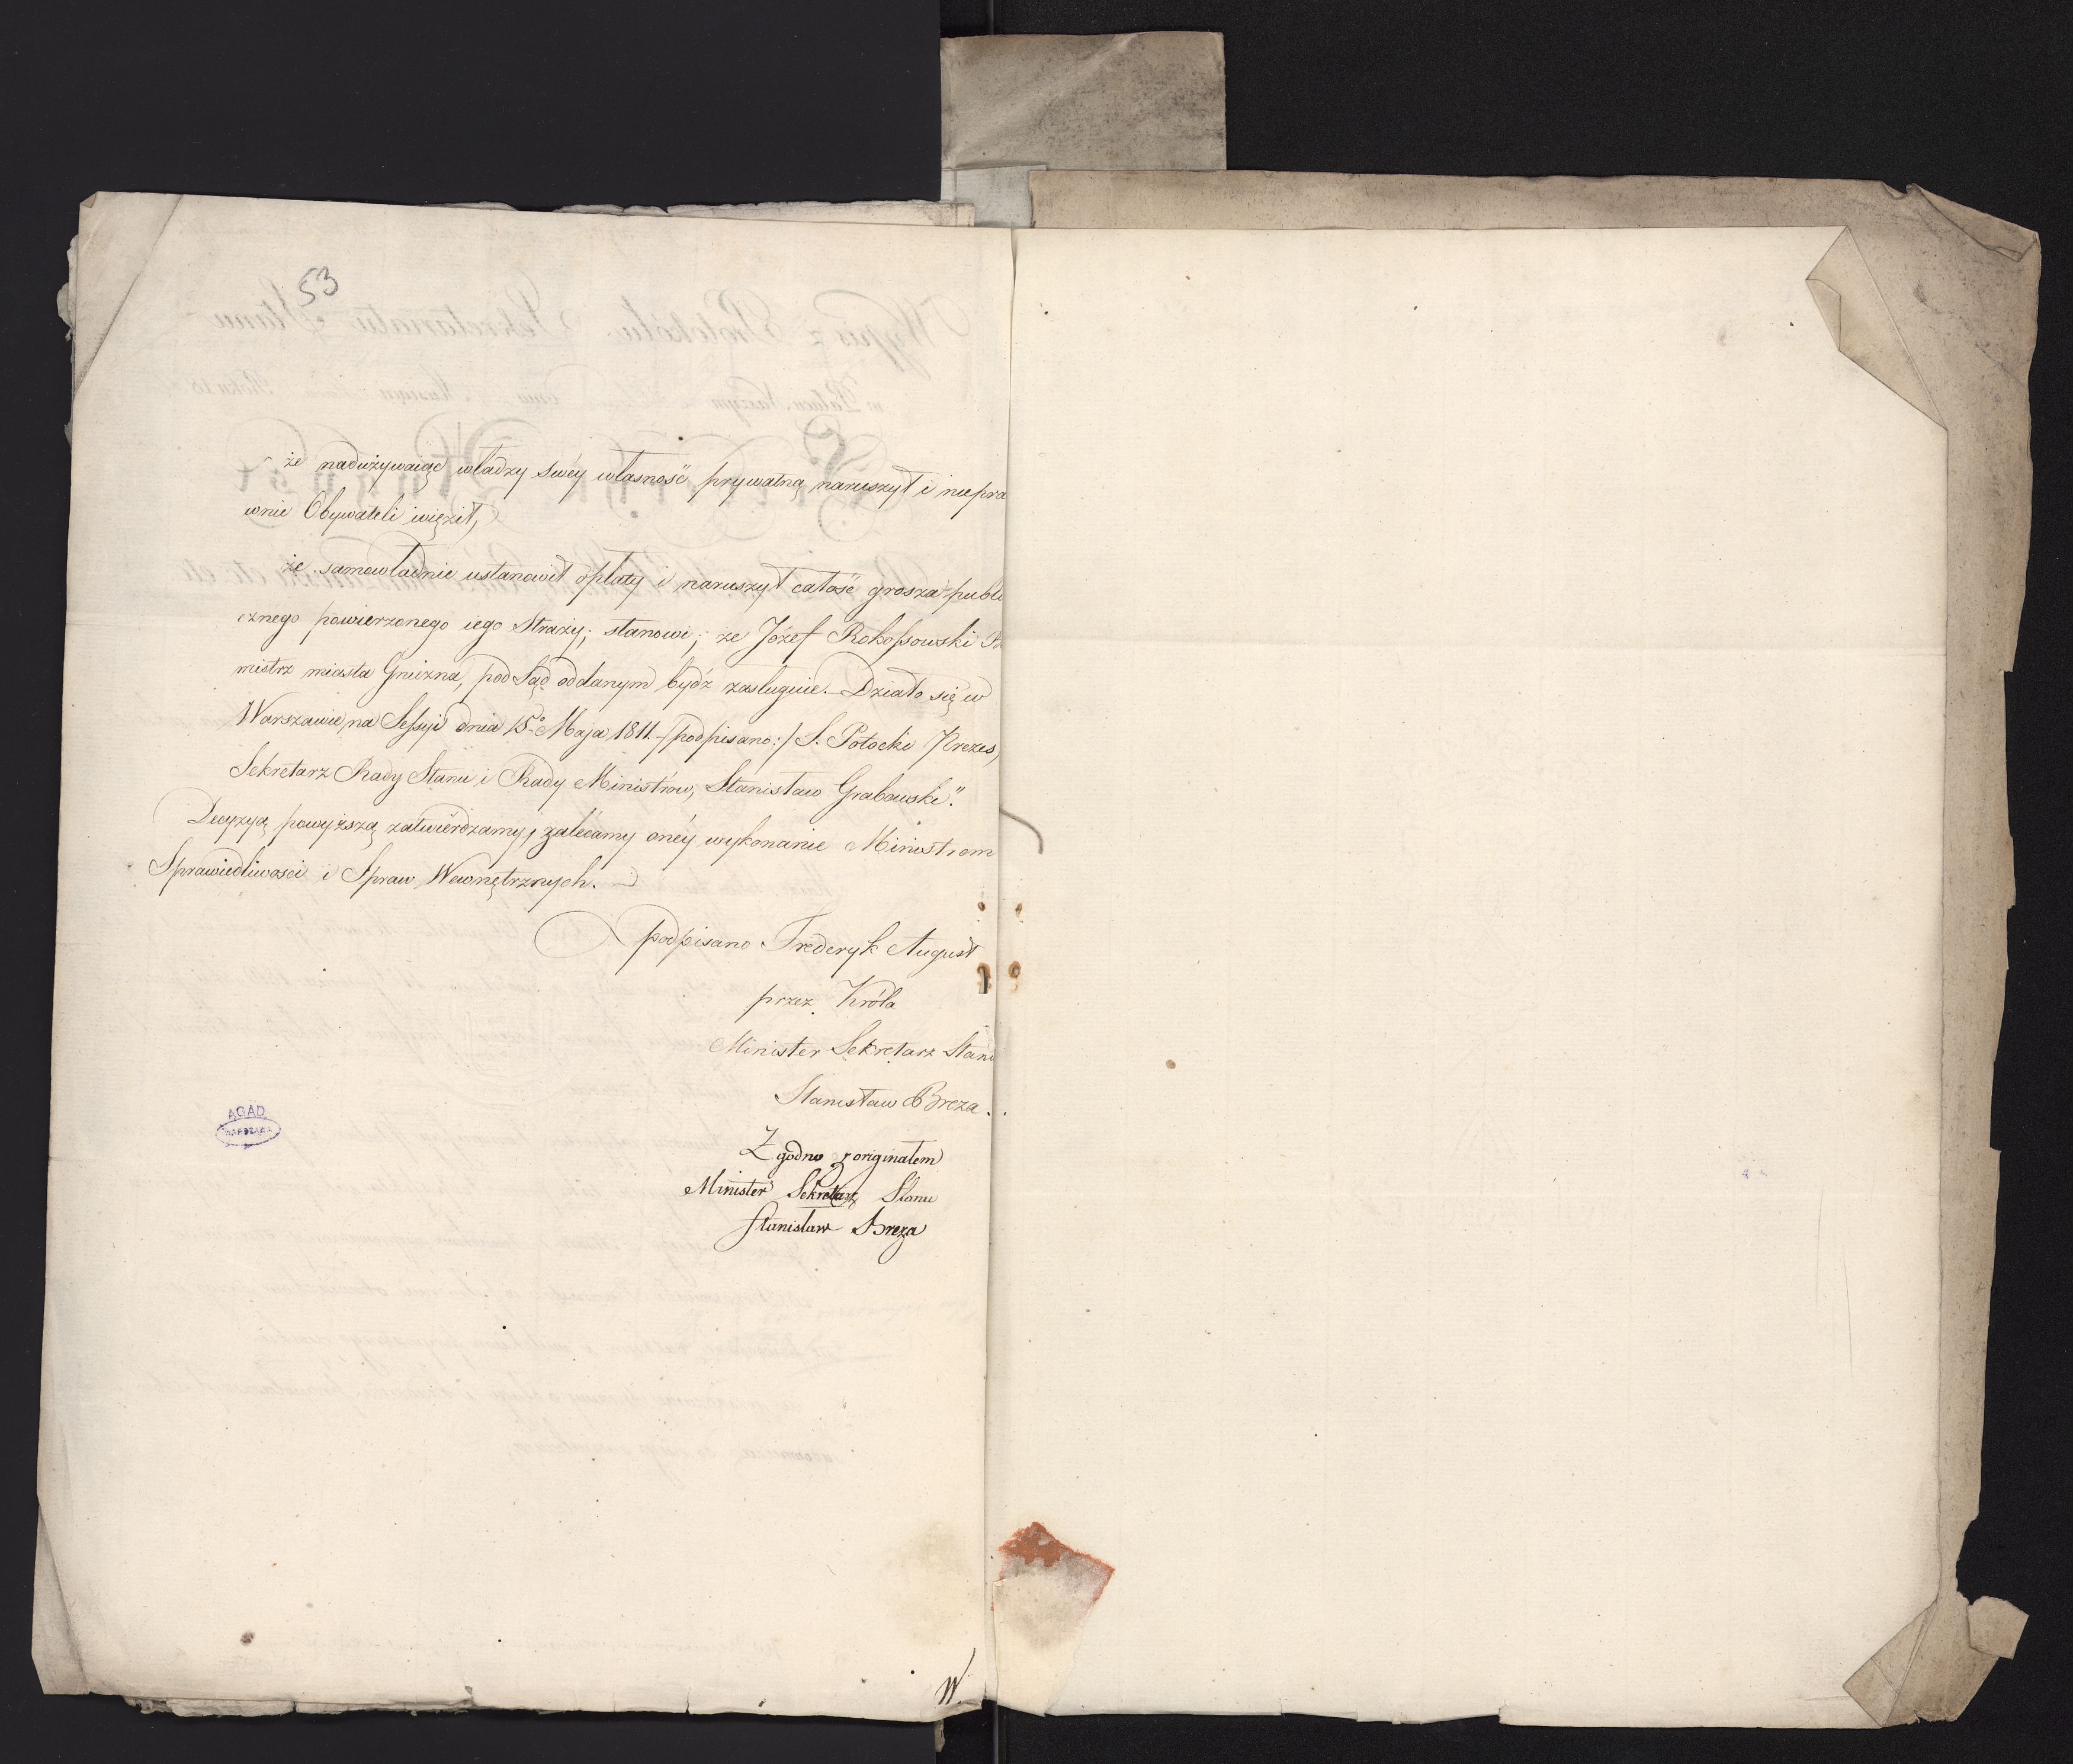 53
że nadużywaiąc władzy swéy własność prywatną naruszył i niepra
wnie Obywateli więził,
że samowładnie ustanowił opłaty i naruszył całość grosza publi
cznego powierzonego iego Straży; stanowi; że Józef Rokossowski
mistrz miasta Gniezna, pod Sąd oddanym bydź zasługuie. Działo się w
Warszawie na Sessyi dnia 15º Maja 1811. /podpisano:/ S. Potocki Prezes,
Sekretarz Rady Stanu i Rady Ministrów, Stanisław Grabowski".
Decyzyą powyższą zatwierdzamy, zalecamy onéy wykonanie Ministrom
Sprawiedliwości i Spraw Wewnętrznych.
podpisano Frederyk August
przez Króla
Minister Sekretarz Stanu
Stanisław Breza.
Zgodno z originałem
Minister Sekretarz Stanu
Stanisław Breza
AGAD
WARSZAWA
W.